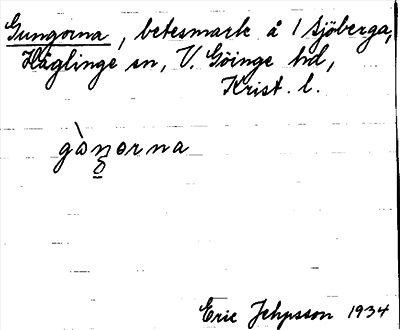 Gungorna, betesmark å 1 Sjöberga,
Häglinge sn, V. Göinge hd,
Krist. l.
gòŋorna
Eric Jehpsson 1934